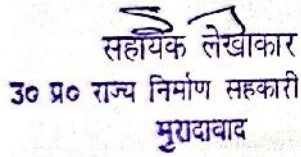 सहायक लेखाकार
उ० प्र० राज्य निर्माण सहकारी
मुरादाबाद